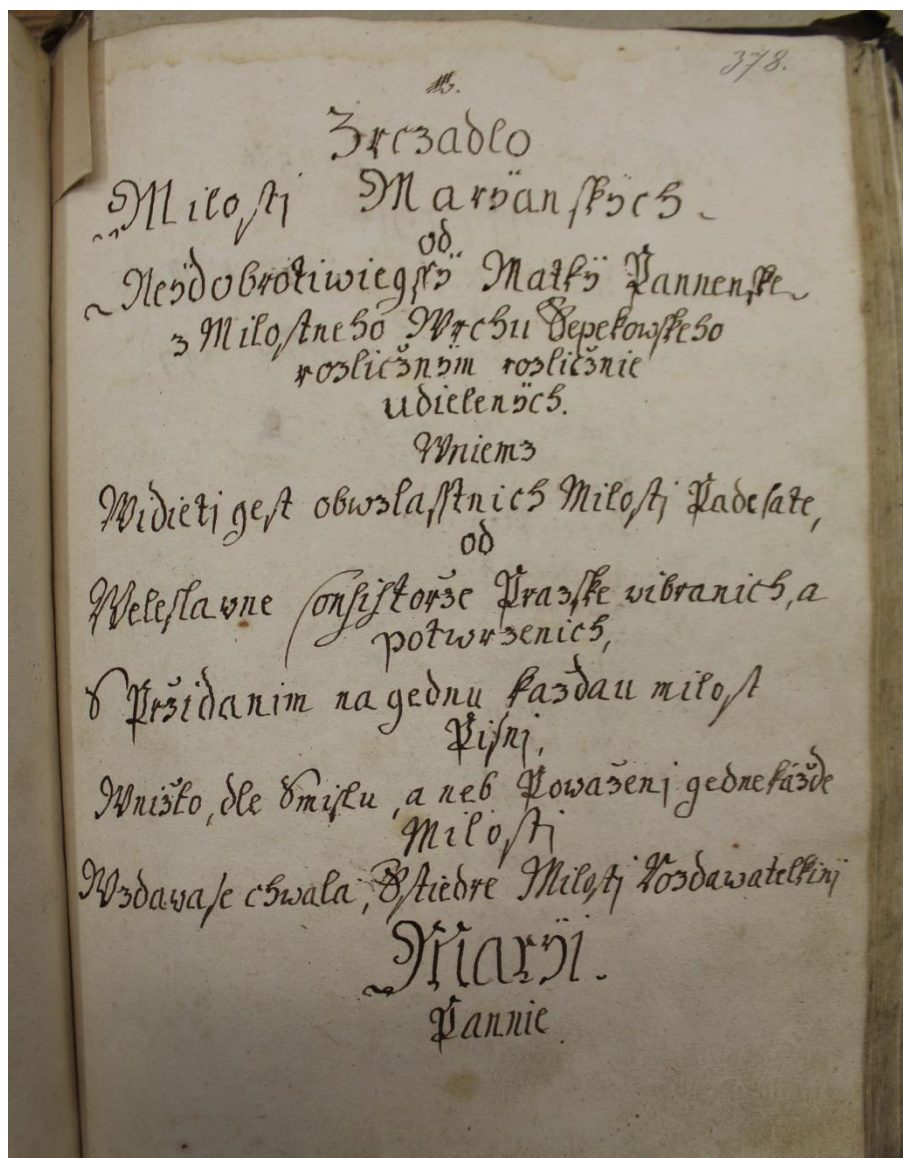 378.
Zrczadlo
Milosti Marÿanskÿch
od
Neÿdobrotiwiegssÿ Matkÿ Pannenske
z Milostneho Wrchu Sepekowskeho
rozličznÿm rozličznie
udielenÿch.
Wniemz
Widieti gest obwzlasstnich Milosti Padesate,
od
Weleslawne Consistorže Prazske wibranich, a
potwrzenich,
S Pržidanim na gednu každau milost
Pisni,
Wnižto, dle Smislu, a neb Powaženj gednekážde
Milosti
Wzdawase chwala, Sstiedre Milosti Rozdawatelkinj
Marÿi.
Pannie